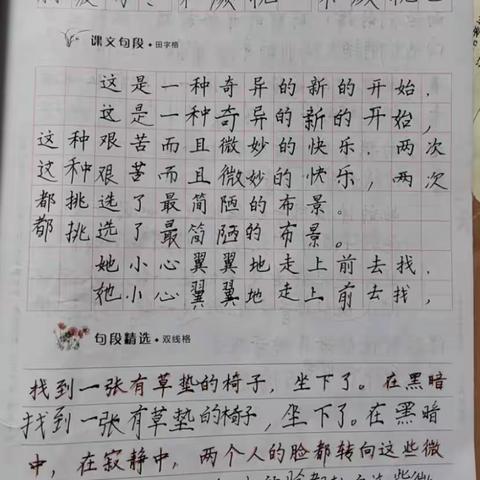 课文句段·田字格
这是一种奇异的新的开始.
这是一种奇异的新的开始,
这种艰苦而且微妙的快乐.两次
这种艰苦而且微妙的快乐,两次
都挑选了最简陋的布景。
都挑选了最简陋的布景。
她小心翼翼地走上前去找.
她小心翼翼地走上前去找,
句段精选·双线格
找到一张有草垫的椅子,坐下了。在黑暗
找到一张有草垫的椅子,坐下了。在黑暗
中,在寂静中,两个人的脸都转向这些微
的脸都转向这些微